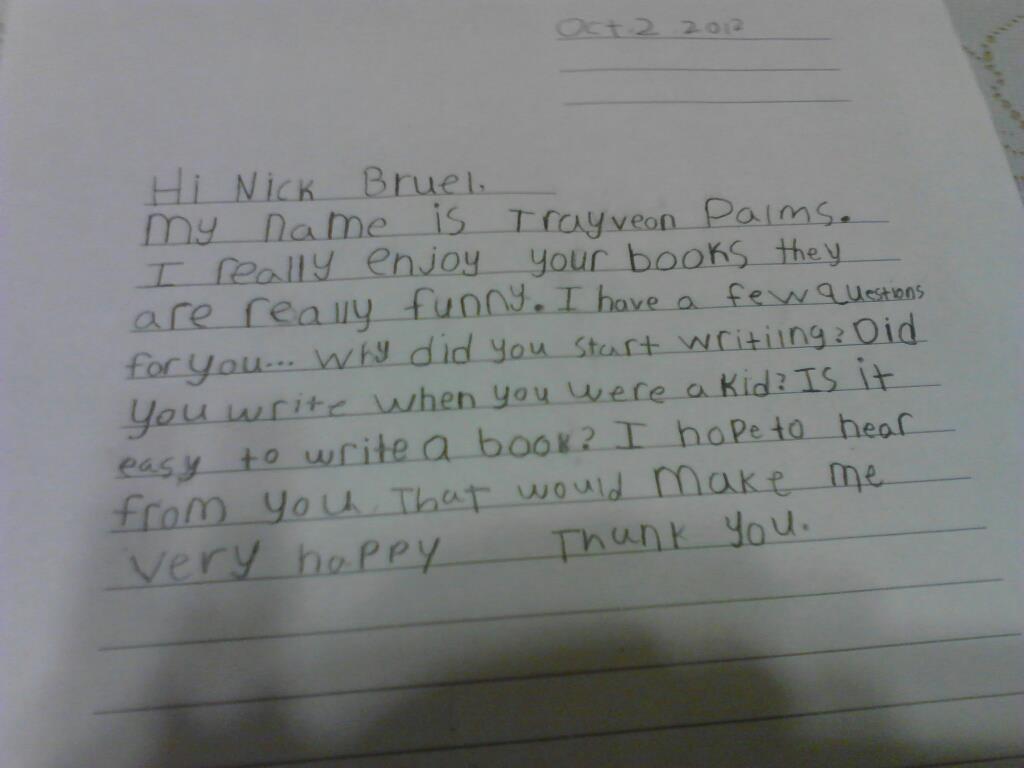 Oct.2 2012
Hi Nick Bruel.
My name is Trayveon Palms.
I really enjoy your books they
are really funny. I have a few questions
for you... Why did you start writiing? Did
you write when you were a kid? Is it
easy to write a book? I hope to hear
from you. That would make me
very happy Thank you.